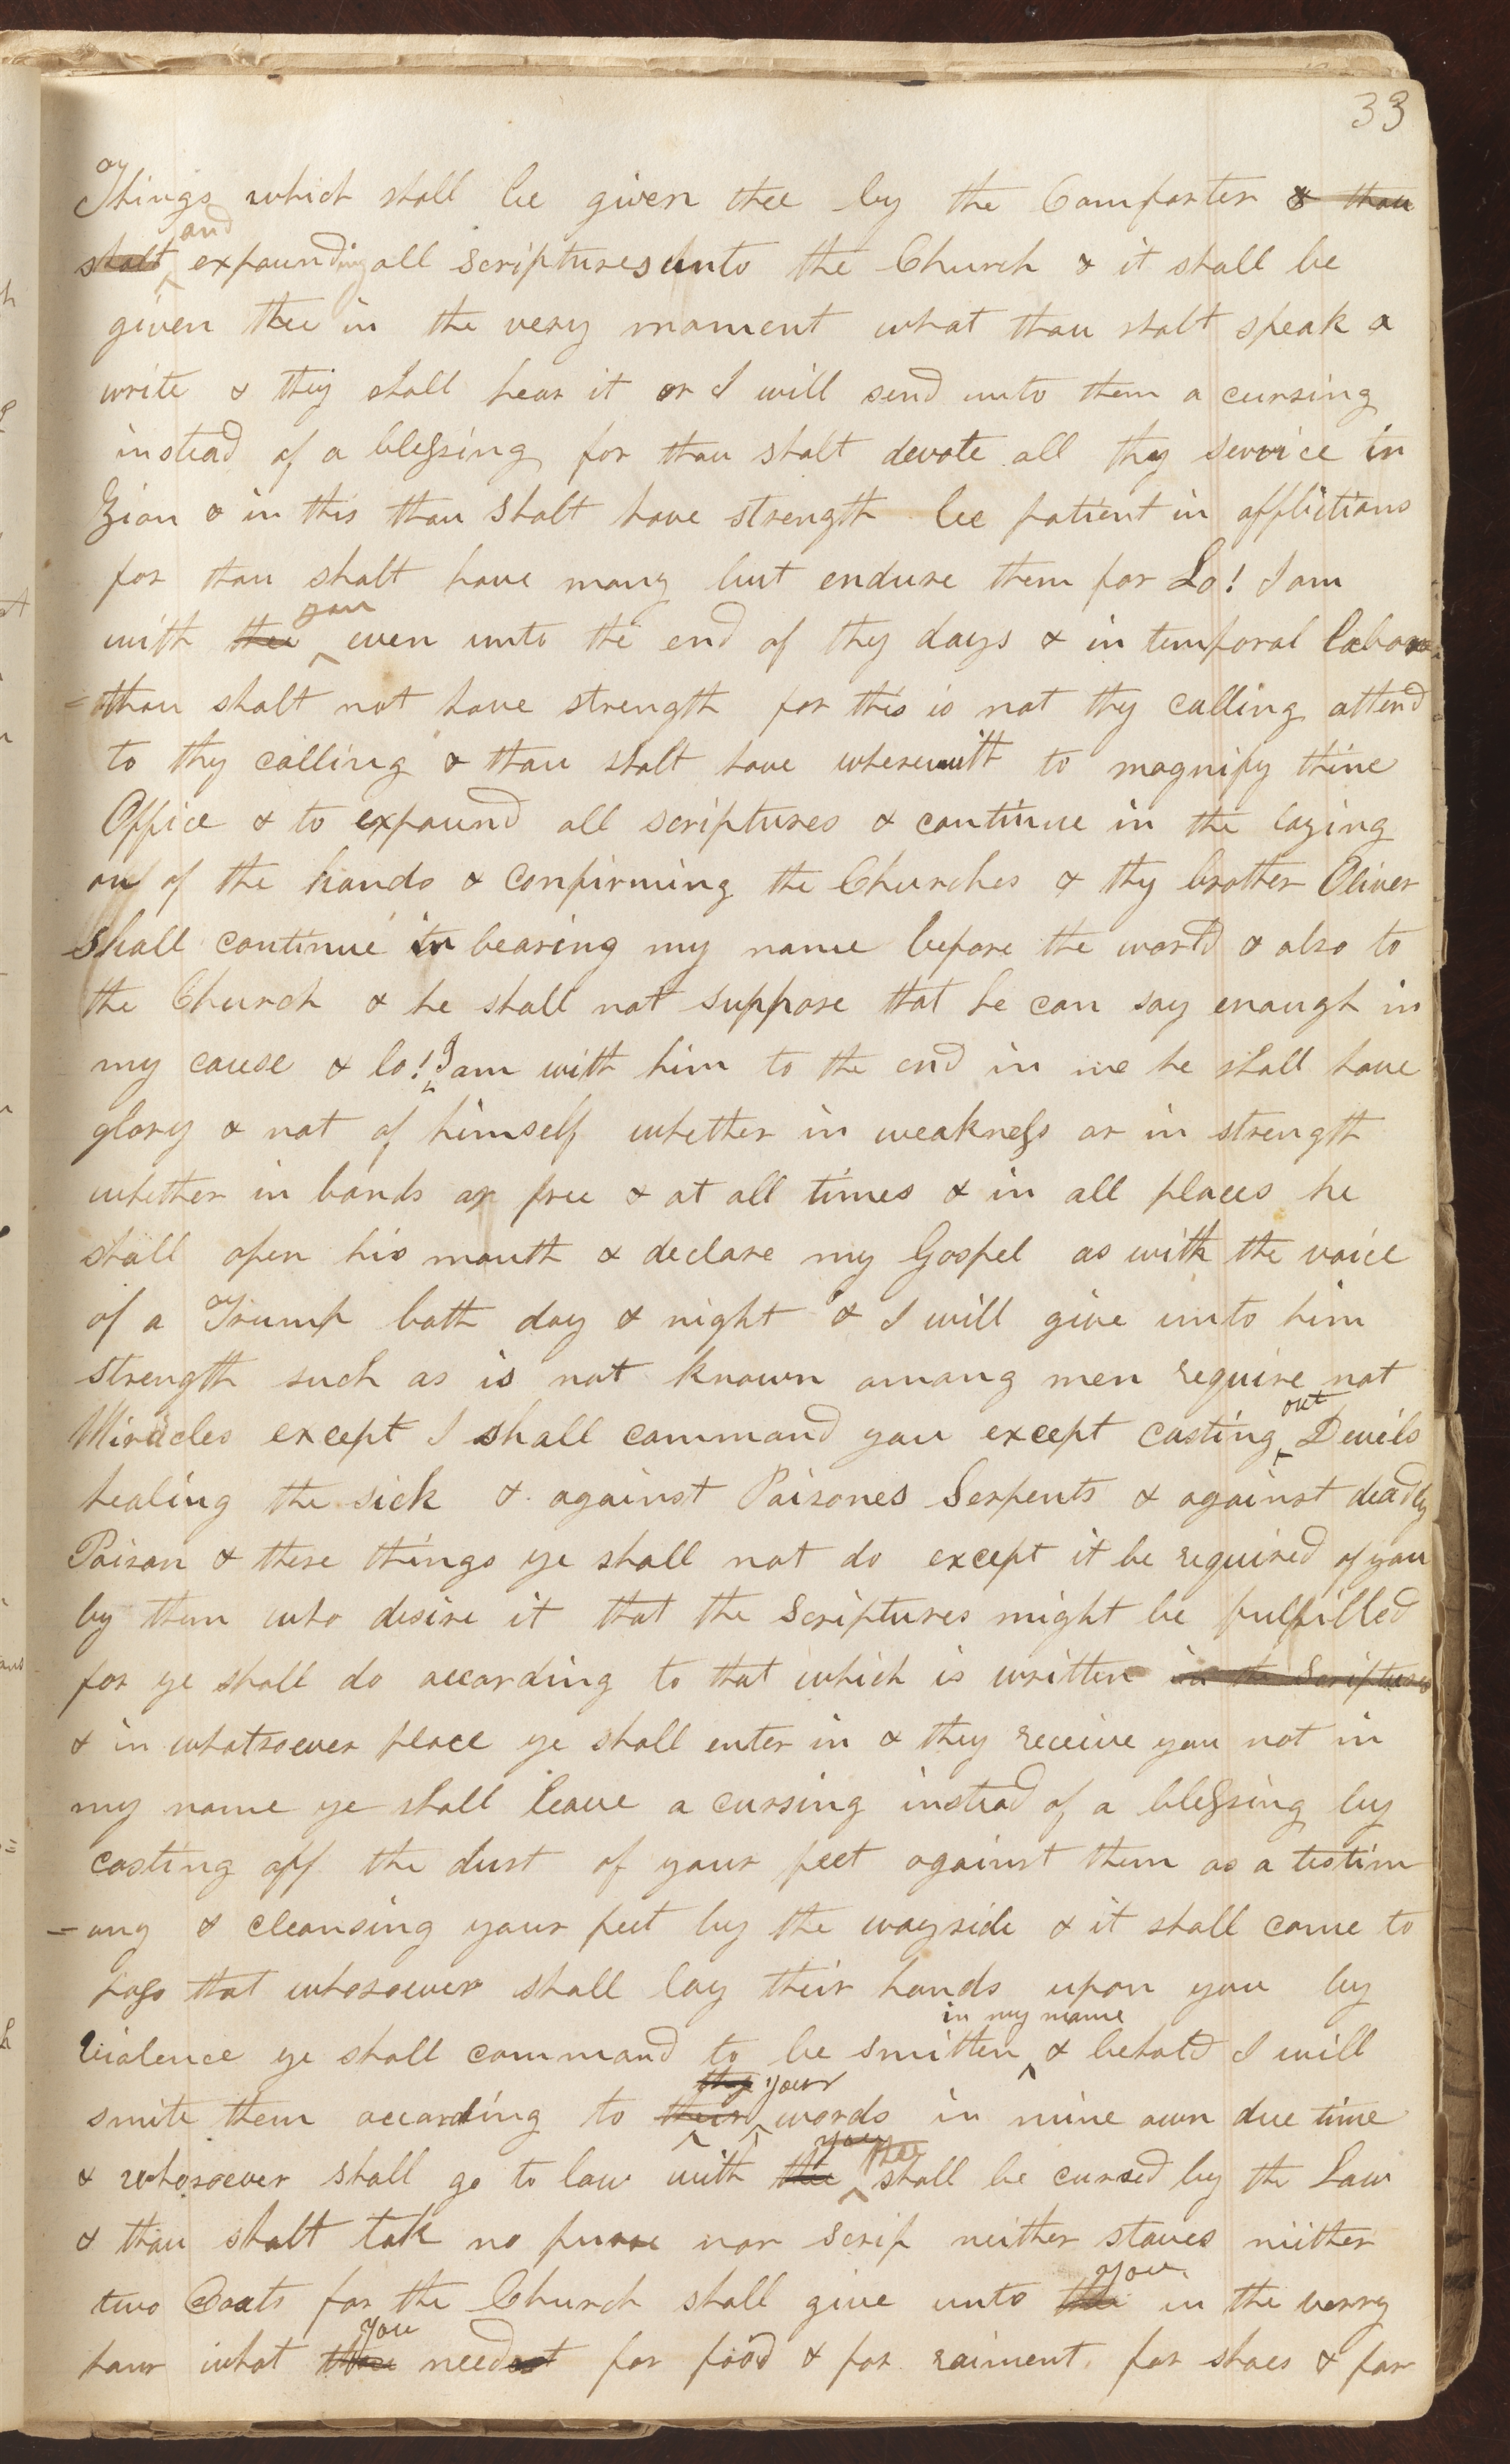 33
Things which shall be given thee by the Comforter & thou
and
shalt expounding all scriptures unto the Church & it shall be
given thee in the very moment what thou shalt speak &
write & they shall hear it or I will send unto them a cursing
instead of a blessing for thou shalt devote all thy service in
Zion & in this thou shalt have strength be patient in afflictions
for thou shalt have many but endure them for Lo! I am
you
with thee even unto the end of thy days & in temporal labors
thou shalt not have strength for this is not thy calling attend
to thy calling & thou shalt have wherewith to magnify thine
Office & to expound all scriptures & continue in the laying
on of the hands & confirming the Churches & thy brother Oliver
shall continue in bearing my name before the world & also to
the Church & he shall not suppose that he can say enough in
my cause & lo! I am with him to the end in me he shall have
glory & not of himself whether in weakness or in strength
whether in bonds or free & at all times & in all places he
shall open his mouth & declare my Gospel as with the voice
of a Trump both day & night & I will give unto him
strength such as is not known among men require not
out
Miracles except I shall command you except casting Devils
healing the sick & against Poisones Serpents & against deadly
Poison & these things ye shall not do except it be required of you
by them who desire it that the Scriptures might be fulfilled
for ye shall do according to that which is written in the Scriptures
& in whatsoever place ye shall enter in & they receive you not in
my name ye shall leave a cursing instead of a blessing by
casting off the dust of your feet against them as a testim
=ony & cleansing your feet by the wayside & it shall come to
pass that whosoever shall lay their hands upon you by
in my name
violence ye shall command to be smitten & behold I will
thy your
smite them according to their words in mine own due time
you thee
& whosoever shall go to law with thee shall be cursed by the Law
& thou shalt take no purse nor scrip neither staves neither
you
two Coats for the Church shall give unto thee in the verry
you
hour what thou needest for food & for raiment for shoes & for